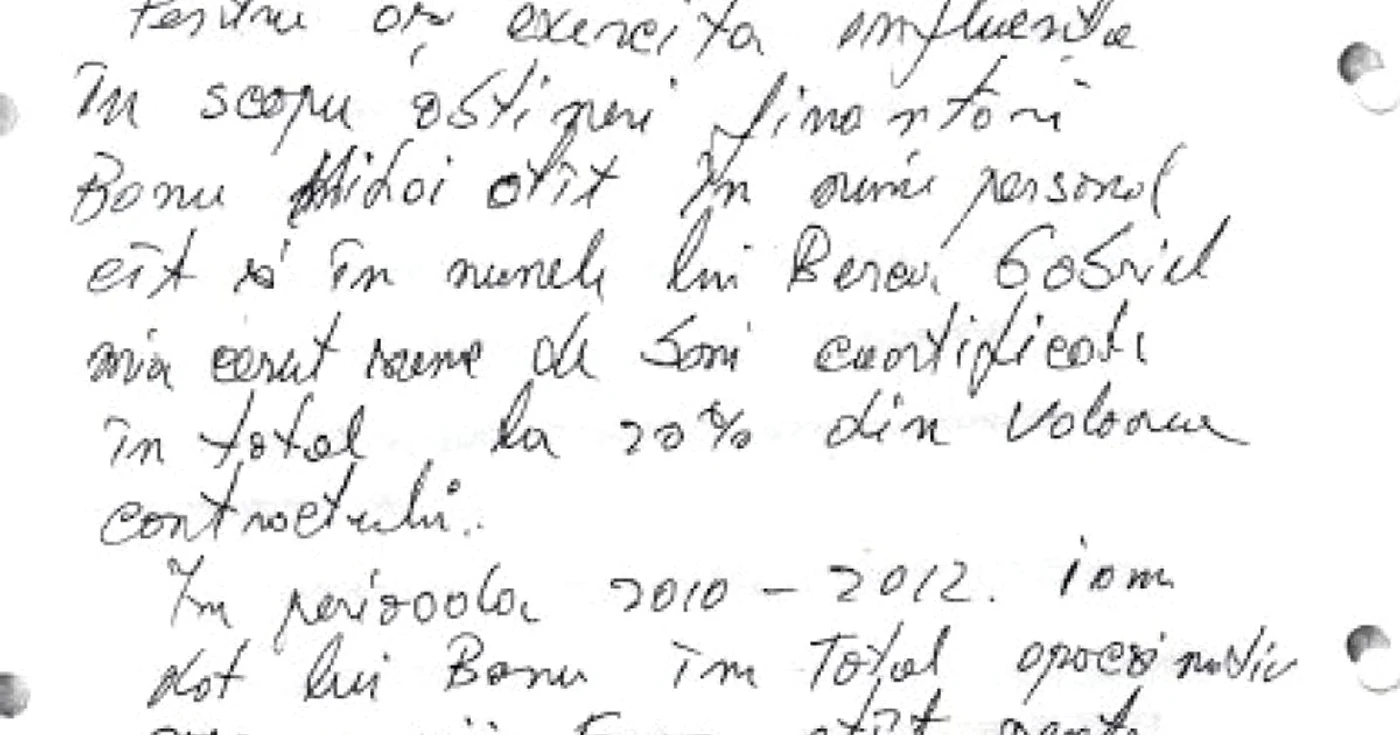 Pentru a-și exercita influența
în scopu obtineri finantări
Banu Mihai atît în nume personal
cît si în numele lui Berca Gabriel
mia cerut sume de bani cuantificate
în total la 20% din valoarea
contractului.
În perioada 2010 - 2012. iam
dat lui Banu în total aproximativ
atît pentr